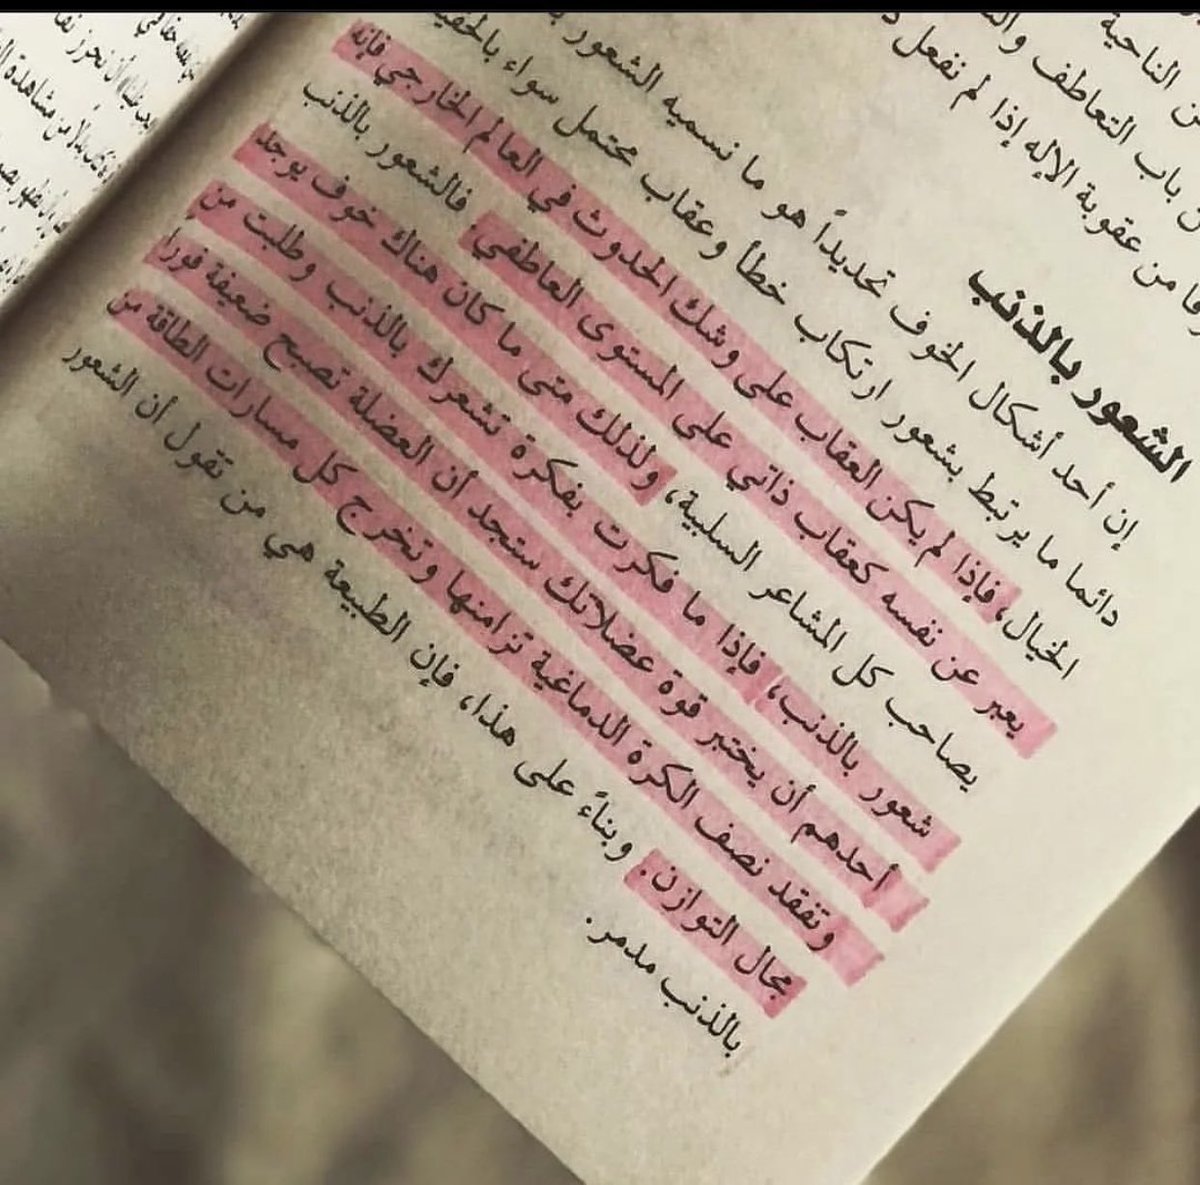 ن الناحية
ن باب التعاطف وال
فا من عقوبة الإله إذا لم نفعل
الشعور بالذنب
إن أحد أشكال الخوف تحديداً هو ما نسميه الشعور
دائما ما يرتبط بشعور ارتكاب خطأ وعقاب محتمل سواء بالحقي
الخيال، فإذا لم يكن العقاب على وشك الحدوث في العالم الخارجي فإنه
يعبر عن نفسه كعقاب ذاتي على المستوى العاطفي. فالشعور بالذنب
يصاحب كل المشاعر السلبية، ولذلك متى ما كان هناك خوف يوجد
شعور بالذنب، فإذا ما فكرت بفكرة تشعرك بالذنب وطلبت من
أحدهم أن يختبر قوة عضلاتك ستجد أن العضلة تصبح ضعيفة فورا
وتفقد نصف الكرة الدماغية تزامنها وتخرج كل مسارات الطاقة من
مجال التوازن. وبناءً على هذا، فإن الطبيعة هي من تقول أن الشعور
بالذنب مدمر.